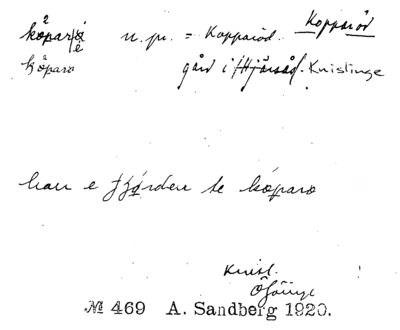 n. pr. = Kopparöd. Kopparöd
kôparo gård i Hjärsås. Knislinge
han e fjórden te kóparo
Knisl.
Ö Göinge
№ 469 A. Sandberg 1920.